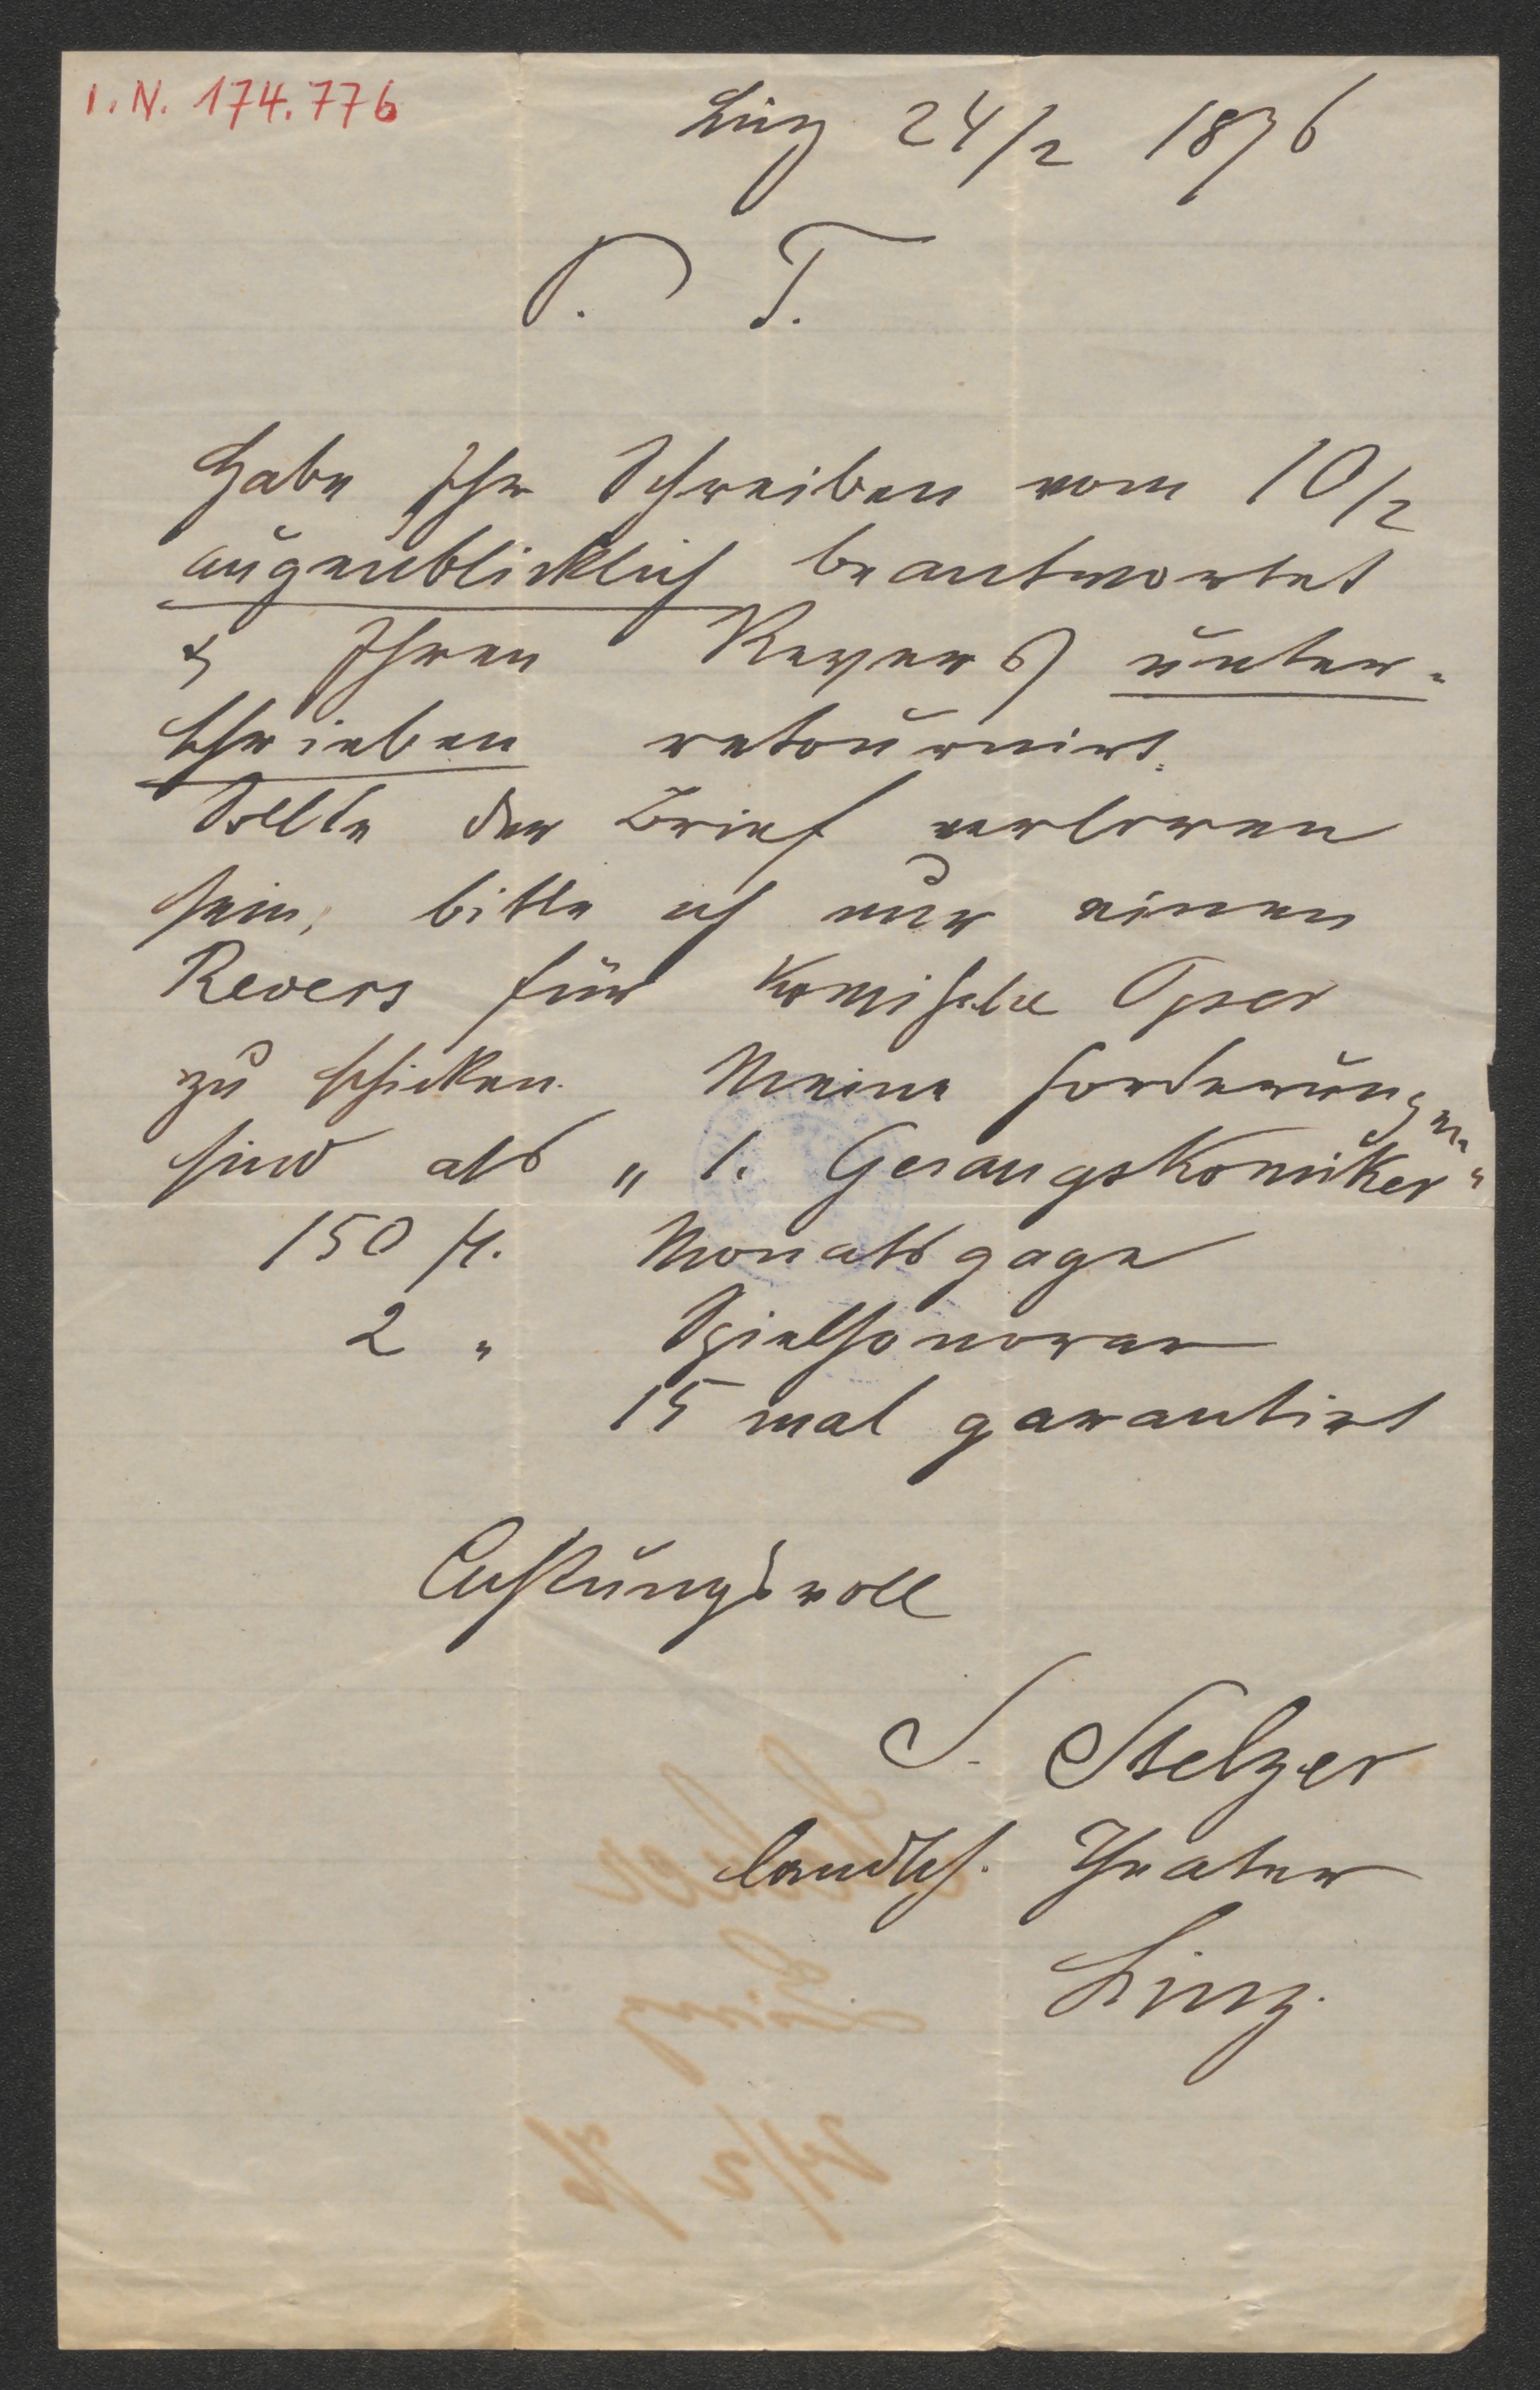 I. N. 174.776
Linz 24/2 1876
P. T.
Habe Ihr Schreiben vom 10/2
augenblicklich beantwortet
& Ihren Revers unter-
schrieben retournirt.
Sollte der Brief verloren
sein, bitte ich nur einen
Revers für Komische Oper
zu schicken. Meine Forderungen
sind als „1. Gesangskomiker"
150 fl. Monatsgage
2 " Spielhonorar
15 mal garantirt
Achtungsvoll
J. Stelzer
landsch. Theater
Linz.